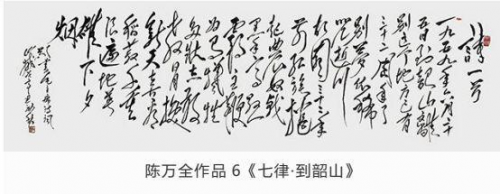 詩一首
一九五九年六月二十
五日到韶山離
别這个地方已有
三十二周年了
别夢依稀
咒逝川
故園三十二年
前紅旗卷
起農奴戟
黑手高懸
霸主鞭
為有犧牲
多壯志敢
教日月換
新天喜看
稻菽千重
浪遍地英
雄下夕
烟
陈万全作品 6《七律·到韶山》